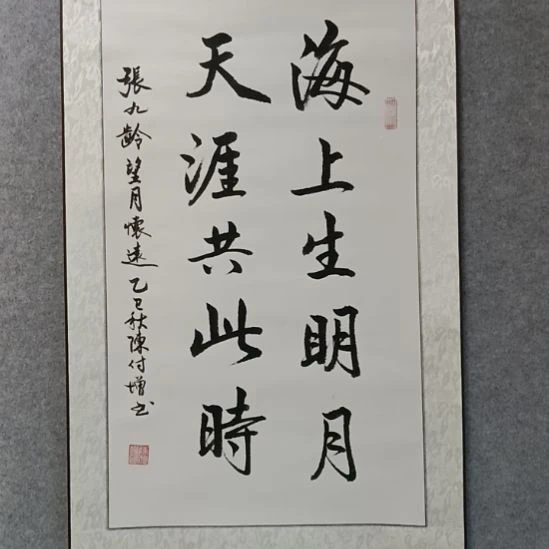 海上生明月
天涯共此時
張九齡望月懷遠乙巳秋陳付增书